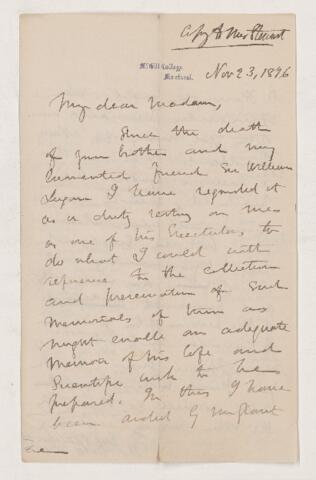 Copy to Mrs Stewart
McGill College,
Montreal.
Nov 23, 1896
My dear Madam,
Since the death
of your brother and my
lamented friend Sir William
Logan I have regarded it
as a duty resting on me
as one of his Executors, to
do what I could with
reference to the collection
and preservation of such
Memorials of him as
might enable an adequate
Memoir of his life and
Scientific work to be
prepared. In this I have
been aided by Mr Grant